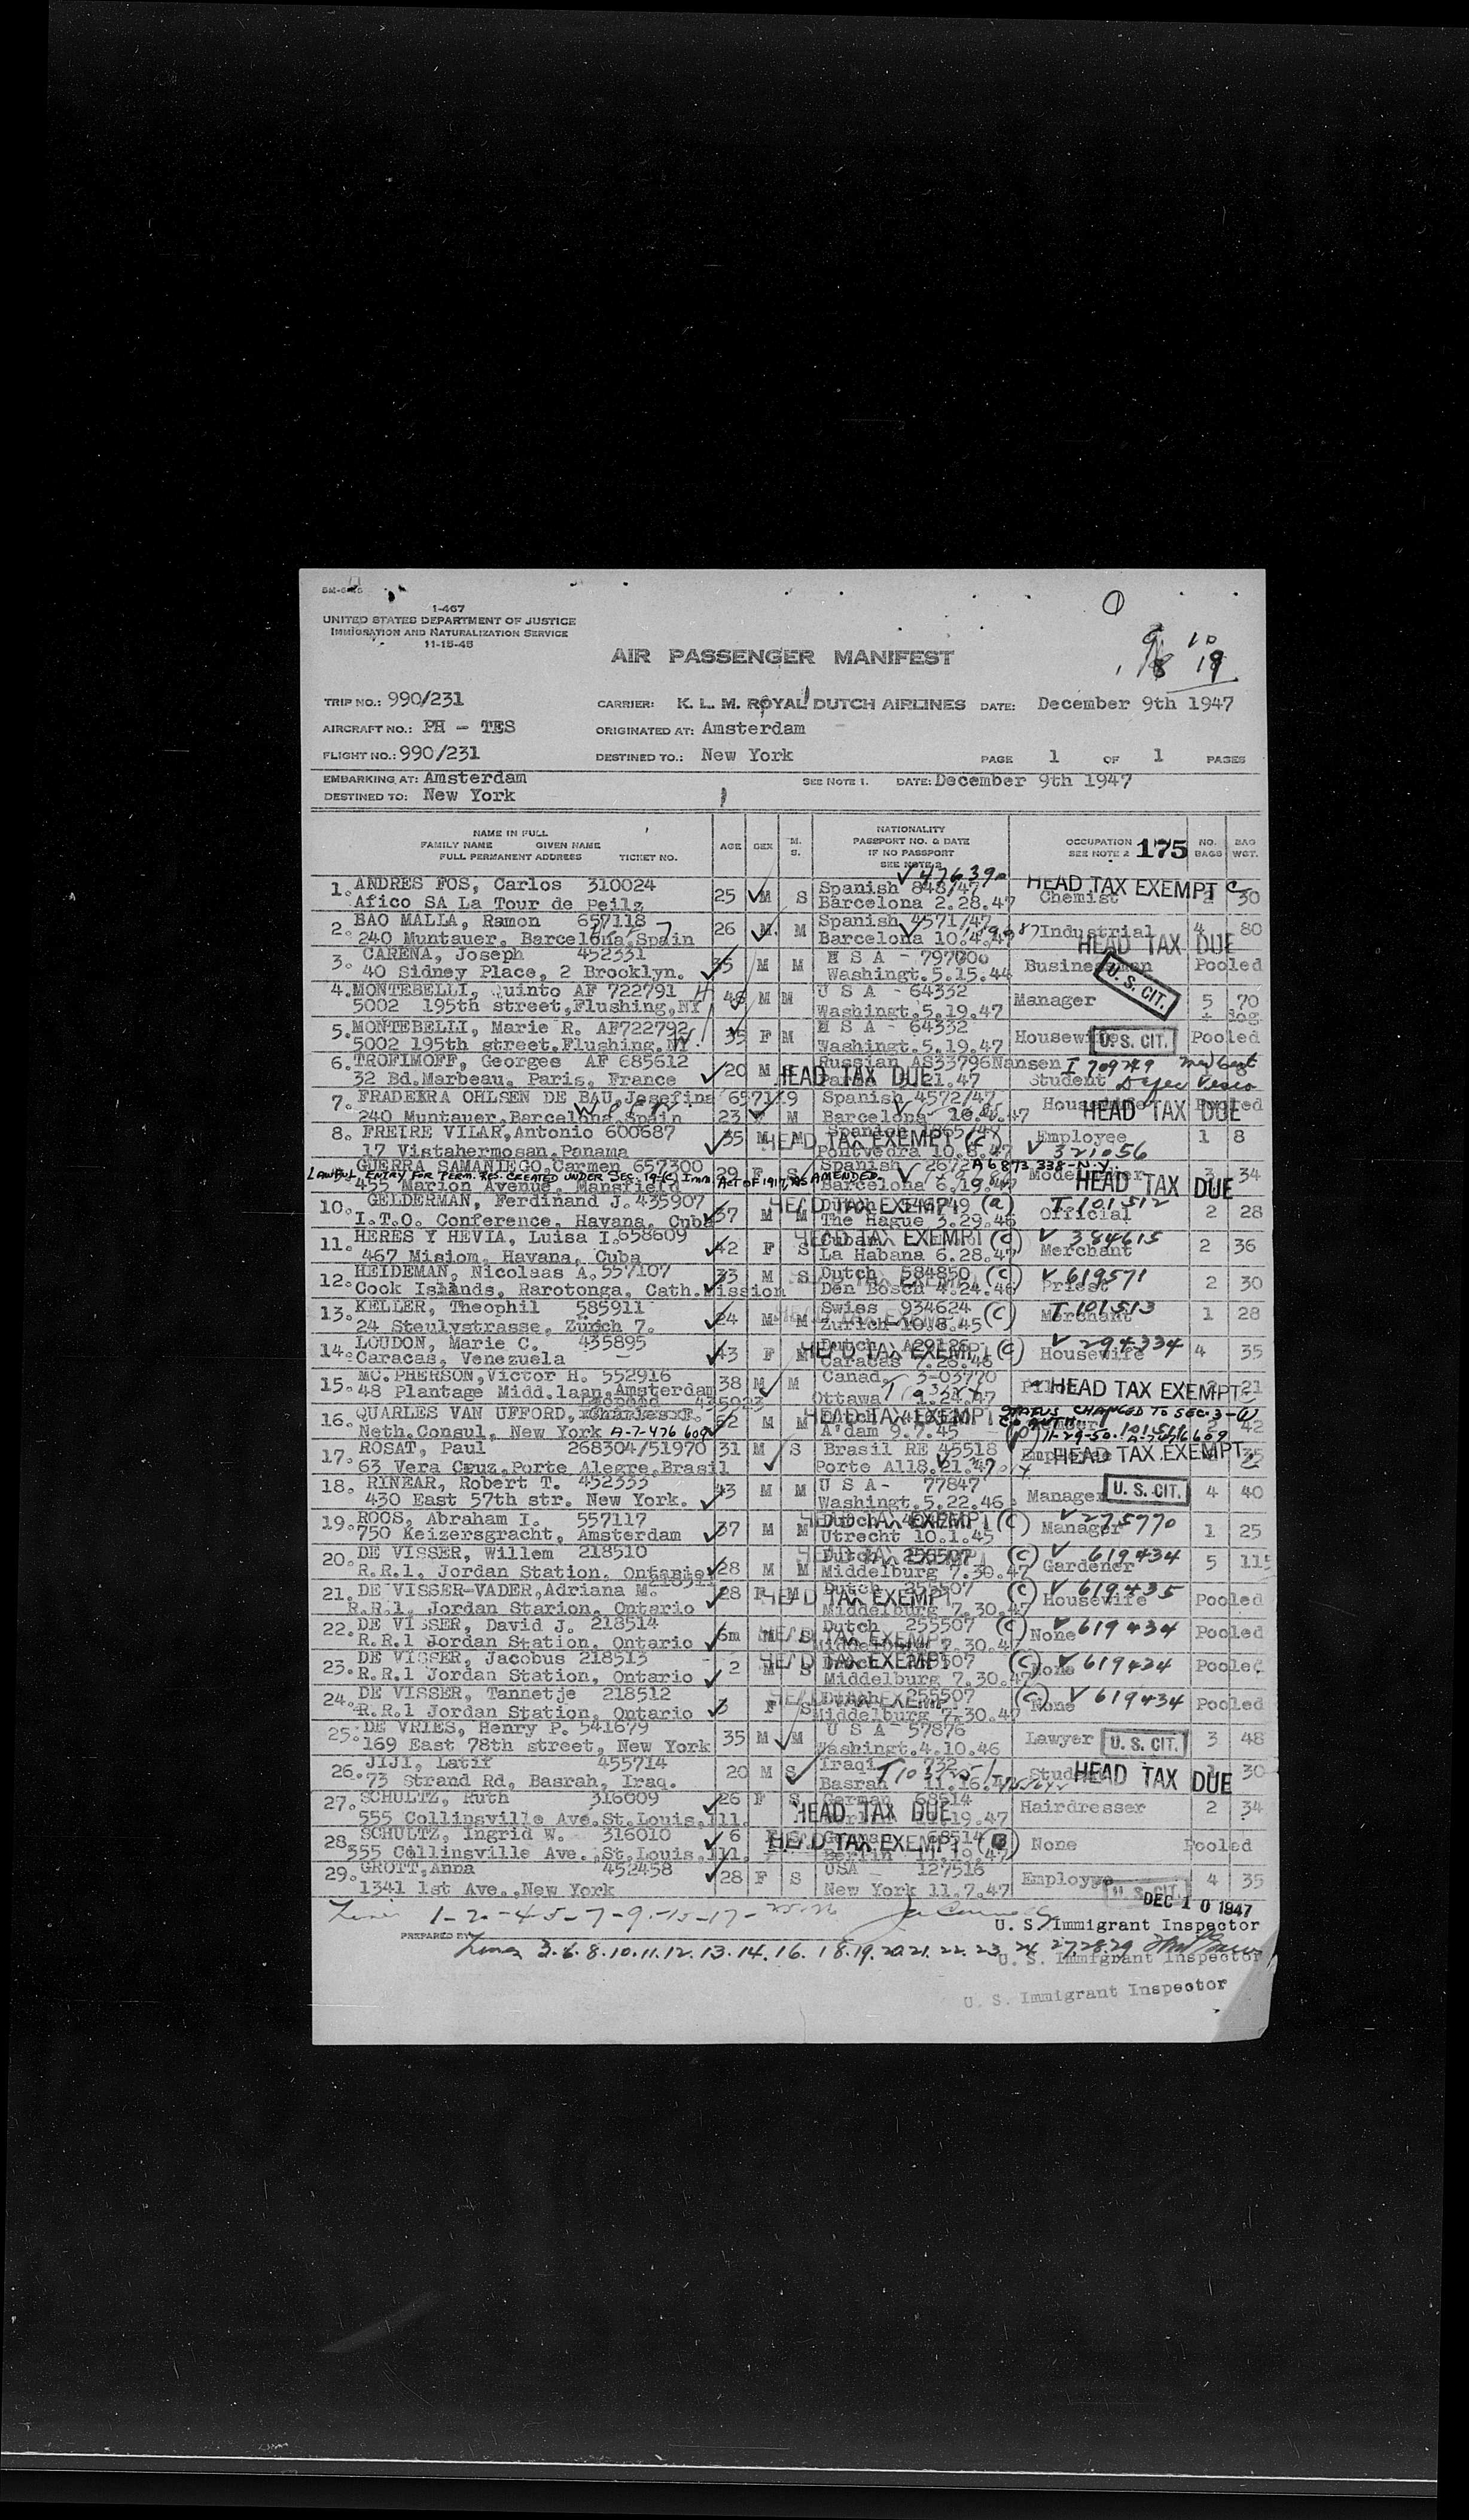 1-467
UNITED STATES DEPARTMENT OF JUSTICE
IMMIGRATION AND NATURALIZATION SERVICE
11-15-45
AIR PASSENGER MANIFEST
TRIP NO.: 990/231 CARRIER: K. L. M. ROYAL DUTCH AIRLINES DATE: December 9th 1947
AIRCRAFT NO.: PH - TES ORIGINATED AT: Amsterdam
FLIGHT NO.: 990/231 DESTINED TO.: New York PAGE 1 OF 1 PAGES
EMBARKING AT: Amsterdam SEE NOTE 1. DATE: December 9th 1947
DESTINED TO: New York
NAME IN FULL
FAMILY NAME GIVEN NAME
FULL PERMANENT ADDRESS TICKET NO.
AGE SEX M. S.
NATIONALITY
PASSPORT NO. & DATE
IF NO PASSPORT
SEE NOTE 2
OCCUPATION
SEE NOTE 2
175
NO. BAGS
BAG WGT.
1. ANDRES FOS, Carlos 310024 25 M S Spanish 848/47 Chemist HEAD TAX EXEMPT C 30
Afico SA La Tour de Peilz Barcelona 2.28.47
2. BAO MALLA, Ramon 657118 26 M M Spanish 4571/47 Industrial 4 80
240 Muntauer. Barcelona Spain Barcelona 10.4.47 HEAD TAX DUE
3. CARENA, Joseph 452331 35 M M U S A - 797000 Businessman U. S. CIT. Pooled
40 Sidney Place, 2 Brooklyn. Washingt.5.15.44
4. MONTEBELLI, Quinto AF 722791 48 M M U S A - 64332 Manager 5 70
5002 195th street,Flushing,NY Washingt.5.19.47
5. MONTEBELLI, Marie R. AF722792 35 F M U S A - 64332 Housewife U. S. CIT. Pooled
5002 195th street.Flushing.NY. Washingt.5.19.47
6. TROFIMOFF, Georges AF 685612 20 M Russian AS33796Nansen I 709749
32 Bd.Marbeau, Paris, France HEAD TAX DUE Student
7. FRADERRA OHLSEN DE BAU,Josefina 657119 Spanish 4572/47 Housewife Pooled
240 Muntauer,Barcelona,Spain 23 F M Barcelona HEAD TAX DUE
8. FREIRE VILAR,Antonio 600687 35 M M HEAD TAX EXEMPT (c) Employee 1 8
17 Vistahermosan,Panama Pontvedra 10.8.47 V 321056
GUERRA SAMANIEGO,Carmen 657300 29 F S Spanish A6873 338-N.Y. 3 34
LAWFUL ENTRY FOR PERM. RES. CREATED UNDER SEC. 19(c) Imm. Act OF 1917, AS AMENDED.
455 Marion Avenue, Mansfield Barcelona 6.19.47 HEAD TAX DUE
10. GELDERMAN, Ferdinand J. 435907 37 M M HEAD TAX EXEMPT (a) T-101512 Official 2 28
I.T.O. Conference, Havana, Cuba The Hague 3.29.46
11. HERES Y HEVIA, Luisa I.658609 42 F S HEAD TAX EXEMPT (c) V 384615 Merchant 2 36
467 Misiom, Havana, Cuba La Habana 6.28.47
12. HEIDEMAN, Nicolaas A. 557107 33 M S Dutch 584850 (c) V 619571 Priest 2 30
Cook Islands, Rarotonga, Cath.Mission Den Bosch 4.24.46
13. KELLER, Theophil 585911 24 M M Swiss 934624 (c) T 101513 Merchant 1 28
24 Steulystrasse, Zürich 7. Zurich 10.8.45
14. LOUDON, Marie C. 435895 43 F M HEAD TAX EXEMPT (c) V 294334 Housewife 4 35
Caracas, Venezuela Caracas 7.26.46
15. MC.PHERSON,Victor H. 552916 38 M M Canad. 3-03770 HEAD TAX EXEMPT 21
48 Plantage Midd.laan,Amsterdam Ottawa 1.24.47
Leopold 435023
16. QUARLES VAN UFFORD, 52 M M HEAD TAX EXEMPT STATUS CHANGED TO SEC. 3-(1) 42
Neth.Consul, New York A-7-476 609 A'dam 9.7.45 11-29-50
17. ROSAT, Paul 268304/51970 31 M S Brasil RE 45518 Employee HEAD TAX EXEMPT
63 Vera Cruz,Porte Alegre,Brasil Porte All8.21.47
18. RINEAR, Robert T. 452335 43 M M U S A - 77847 Manager U. S. CIT. 4 40
430 East 57th str. New York. Washingt.5.22.46
19. ROOS, Abraham I. 557117 37 M M HEAD TAX EXEMPT (c) V 275770 Manager 1 25
750 Keizersgracht, Amsterdam Utrecht 10.1.45
20. DE VISSER, Willem 218510 28 M M Dutch 255507 (c) V 619434 Gardener 5 115
R.R.1, Jordan Station, Ontario Middelburg 7.30.47
21. DE VISSER-VADER,Adriana M. 218511 28 F M Dutch 255507 (c) V 619435 Housewife Pooled
R.R.1, Jordan Starion, Ontario HEAD TAX EXEMPT Middelburg 7.30.47
22. DE VISSER, David J. 218514 6m M S Dutch 255507 (c) None V 619434 Pooled
R.R.1 Jordan Station, Ontario HEAD TAX EXEMPT Middelburg 7.30.47
23. DE VISSER, Jacobus 218513 2 M S HEAD TAX EXEMPT 255507 (c) V 619434 None Pooled
R.R.1 Jordan Station, Ontario Middelburg 7.30.47
24. DE VISSER, Tannetje 218512 3 F S Dutch 255507 (c) V 619434 None Pooled
R.R.1 Jordan Station, Ontario HEAD TAX EXEMPT Middelburg 7.30.47
25. DE VRIES, Henry P. 541679 35 M M U S A 57876 Lawyer U. S. CIT. 3 48
169 East 78th street, New York Washingt.4.10.46
26. JIJI, Latif 455714 20 M S Iraqi 732 Student HEAD TAX DUE 30
73 Strand Rd, Basrah, Iraq. Basrah
27. SCHULTZ, Ruth 316009 26 F S German 68514 Hairdresser 2 34
555 Collinsville Ave.St.Louis,Ill. HEAD TAX DUE
28. SCHULTZ, Ingrid W. 316010 6 HEAD TAX EXEMPT None Pooled
555 Collinsville Ave.,St.Louis,Ill. Berlin 11.19.47
29. GROTT,Anna 452458 28 F S USA 127518 Employye U. S. CIT. 4 35
1341 1st Ave.,New York New York 11.7.47
DEC 10 1947
Lines 1-2-4-5-7-9-15-17-25-26
U. S. Immigrant Inspector
PREPARED BY
Lines 3.6.8.10.11.12.13.14.16.18.19.20.21.22.23 24 27.28.29
U. S. Immigrant Inspector
U. S. Immigrant Inspector